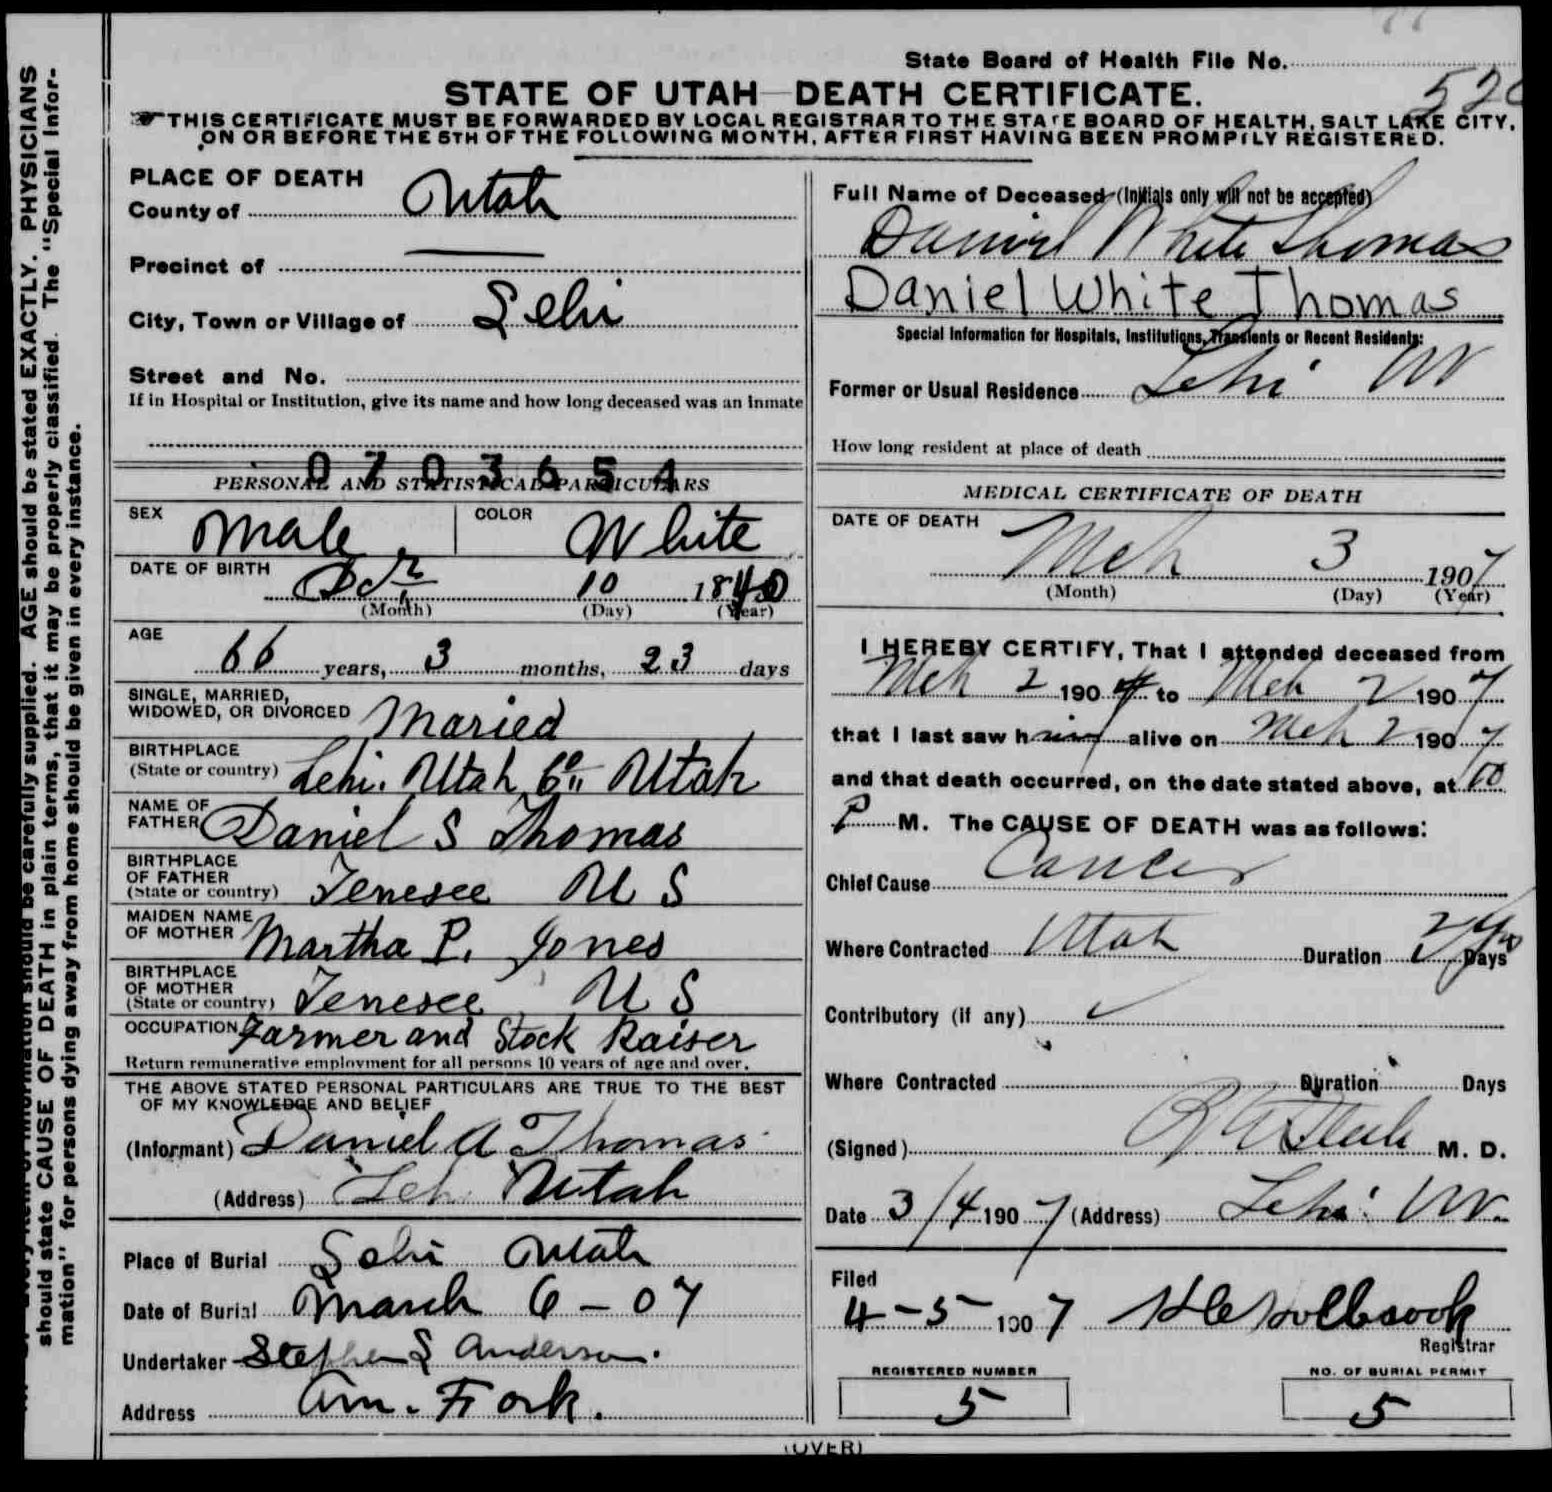 State Board of Health File No.
STATE OF UTAH—DEATH CERTIFICATE.
THIS CERTIFICATE MUST BE FORWARDED BY LOCAL REGISTRAR TO THE STATE BOARD OF HEALTH, SALT LAKE CITY,
ON OR BEFORE THE 5TH OF THE FOLLOWING MONTH, AFTER FIRST HAVING BEEN PROMPTLY REGISTERED.
should be carefully supplied. AGE should be stated EXACTLY. PHYSICIANS
should state CAUSE OF DEATH in plain terms, that it may be properly classified. The "Special Infor-
mation" for persons dying away from home should be given in every instance.
PLACE OF DEATH
County of Utah
Precinct of —
City, Town or Village of Lehi
Street and No.
If in Hospital or Institution, give its name and how long deceased was an inmate
0703654
PERSONAL AND STATISTICAL PARTICULARS
SEX Male COLOR White
DATE OF BIRTH 10 1840
(Month) (Day) (Year)
AGE 66 years, 3 months, 23 days
SINGLE, MARRIED,
WIDOWED, OR DIVORCED Maried
BIRTHPLACE
(State or country) Lehi. Utah Co. Utah
NAME OF
FATHER Daniel S Thomas
BIRTHPLACE
OF FATHER
(State or country) Tenesee U S
MAIDEN NAME
OF MOTHER Martha P. Jones
BIRTHPLACE
OF MOTHER
(State or country) Tenesee U S
OCCUPATION Farmer and Stock Raiser
Return remunerative employment for all persons 10 years of age and over.
THE ABOVE STATED PERSONAL PARTICULARS ARE TRUE TO THE BEST
OF MY KNOWLEDGE AND BELIEF
(Informant) Daniel A Thomas
(Address) Lehi Utah
Place of Burial Lehi Utah
Date of Burial March 6 - 07
Undertaker Stephen S Anderson.
Address Am. Fork.
Full Name of Deceased (Initials only will not be accepted)
Daniel White Thomas
Daniel White Thomas
Special Information for Hospitals, Institutions, Transients or Recent Residents:
Former or Usual Residence Lehi Ut
How long resident at place of death
MEDICAL CERTIFICATE OF DEATH
DATE OF DEATH
Mch 3 1907
(Month) (Day) (Year)
I HEREBY CERTIFY, That I attended deceased from
Mch 2 190 to Mch 2 1907
that I last saw him alive on Mch 2 1907
and that death occurred, on the date stated above, at 10
P M. The CAUSE OF DEATH was as follows:
Chief Cause Cancer
Where Contracted Utah Duration Days
Contributory (if any)
Where Contracted Duration Days
(Signed) M. D.
Date 3/4 1907 (Address) Lehi Ut.
Filed
4-5 1907
Registrar
REGISTERED NUMBER
5
NO. OF BURIAL PERMIT
5
(OVER)